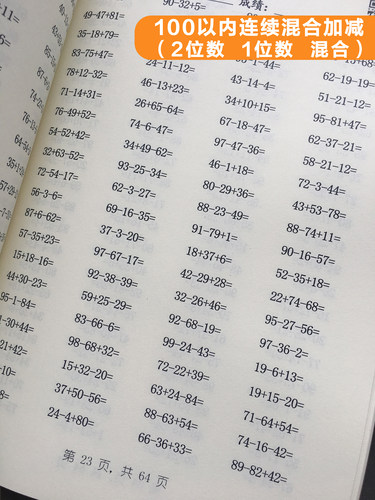 100以内连续混合加减
（2位数 1位数 混合）
成绩：
49-47+81=
35-18+79=
83-75+47=
78+12-32=
71-14+31=
76-49+52=
54-52+42=
32+63-52=
72-54-17=
56-3-6=
87+6-62=
57-35+23=
15+18-16=
44+30-23=
95-1-84=
90-32+5=
24-11-12=
46-13+23=
26+65-64=
74-6-47=
34+49-62=
93-25-34=
62-3-27=
69-16-35=
37-3-20=
97-67-17=
92-38-39=
59+25-29=
83-66-6=
98-68+32=
15+32-20=
37+50-56=
24-4+80=
34+10+15=
67-18-47=
97-47-36=
46-1+18=
80-29+36=
88-23-49=
91-79+1=
18+37+6=
42-29+28=
32-26+46=
92-68-19=
99-24-43=
72-22+39=
63+24-84=
88-63+54=
66-36+33=
62-19-19=
51-21-12=
95-81+47=
62-37-21=
58-21-12=
72-3-44=
43+53-78=
88-74+11=
90-16-57=
52-35+18=
22+74-68=
95-27-56=
97-36-2=
19-6+13=
19+15-20=
71-64+54=
74-16-42=
89-82+42=
第 23 页, 共 64 页